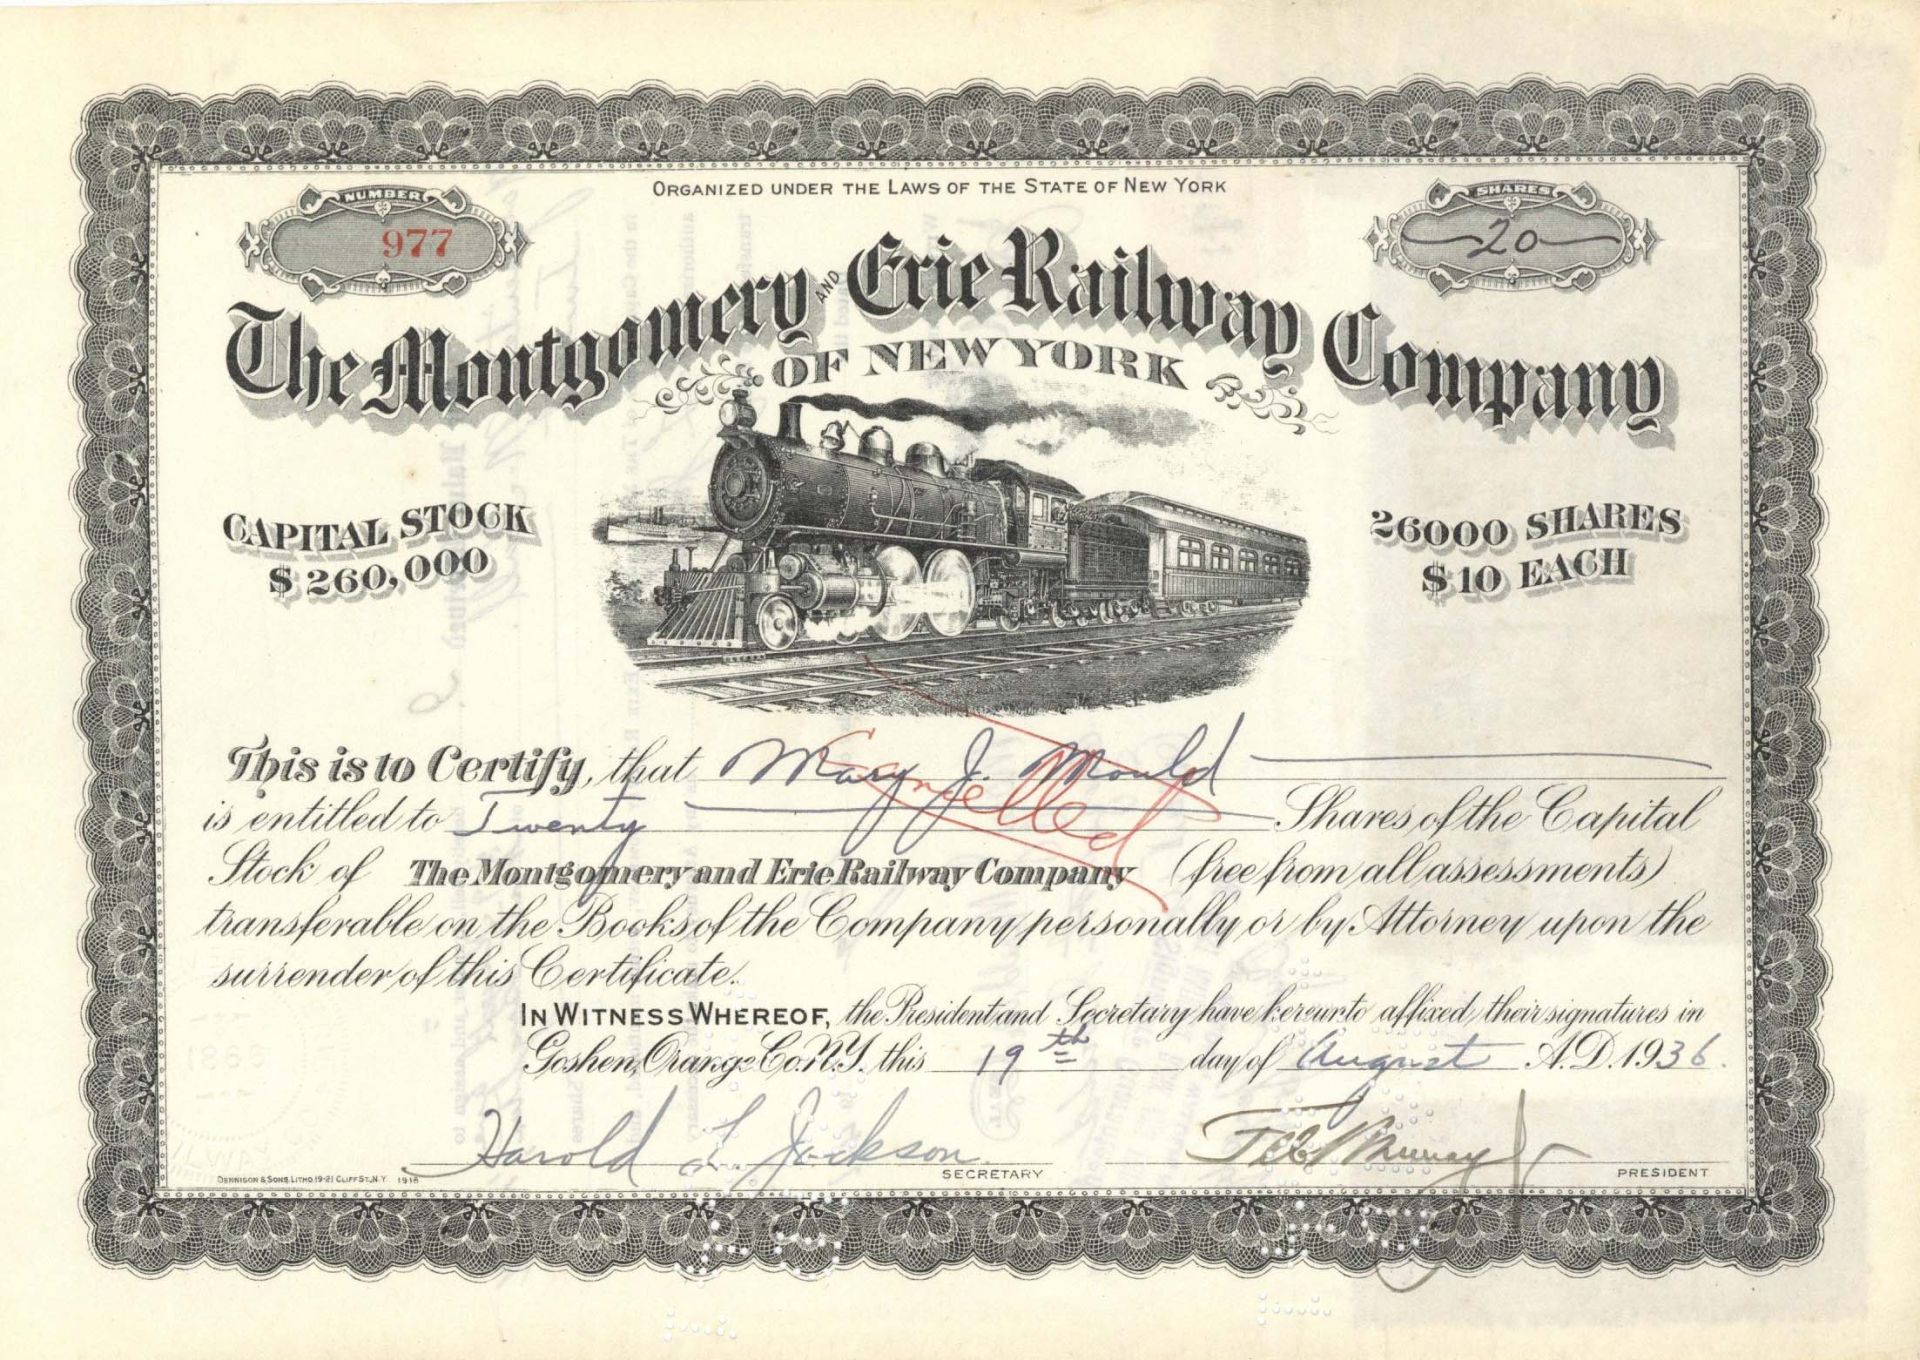 ORGANIZED UNDER THE LAWS OF THE STATE OF NEW YORK
NUMBER
977
SHARES
20
The Montgomery AND Erie Railway Company
OF NEW YORK
CAPITAL STOCK
$260,000
26000 SHARES
$10 EACH
This is to Certify, that Mary J. Mould
Cancelled
is entitled to Twenty Shares of the Capital
Stock of The Montgomery and Erie Railway Company (free from all assessments)
transferable on the Books of the Company personally or by Attorney upon the
surrender of this Certificate.
IN WITNESS WHEREOF, the President and Secretary have hereunto affixed their signatures in
Goshen, Orange Co. N.Y. this 19th day of August A.D. 1936.
Harold L. Jackson
SECRETARY
Murray
PRESIDENT
DENNISON & SONS, LITHO. 19-21 CLIFF ST., N.Y. 1918